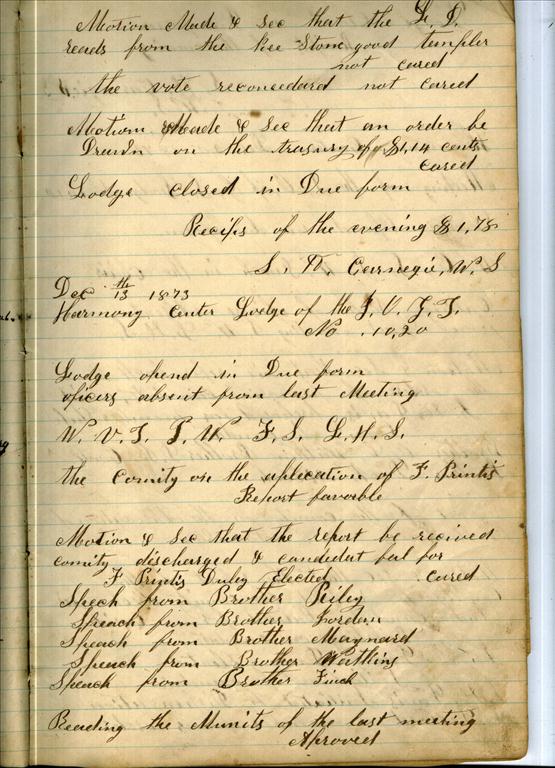 Motion Made & Sec that the L. D.
reads from the Kee Stone good templer
not cared
the vote reconcedard not cared
Motion Made & Sec that an order be
Drawn on the treasury of $1,14 cents
cared
Lodge closed in Due form
Recips of the evening $1,78
S. W. Carnegie, W. S
Dec 13th 1873
Harmony Center Lodge of the I. O. G. T.
No. 10,20
Lodge opend in Due form
oficers absent from last Meeting
W. V. T. P. W. F. S. L. H. S.
the Comity on the aplication of F. Printis
Report favorable
Motion & Sec that the report be recived
comity discharged & candidat bal for
F Printis Duley Elected cared
Spech from Brother Riley
Speach from Brother Gordon
Speach from Brother Maynard
Speach from Brother
Speach from Brother Finch
Reading the Munits of the last meeting
Aproved